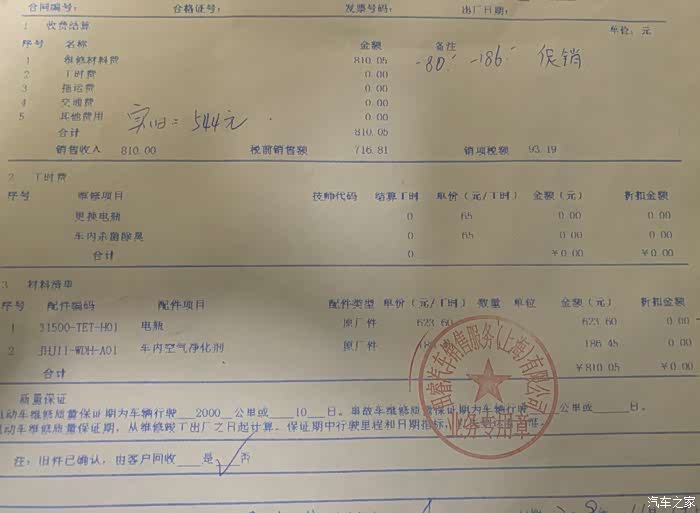 合同编号： 合格证号： 发票号码： 出厂日期：
1 收费结算 单位：元
序号 名称 金额 备注
1 维修材料费 810.05 -80. -186. 促销
2 工时费 0.00
3 拖运费 0.00
4 交通费 0.00
5 其他费用 0.00
实收=544元
合计 810.05
销售收入 810.00 税前销售额 716.81 销项税额 93.19
2 工时费
序号 维修项目 技师代码 结算工时 单价（元/工时） 金额（元） 折扣金额
更换电瓶 0 65 0.00 0.00
车内杀菌除臭 0 65 0.00 0.00
合计 0 ¥0.00 ¥0.00
3 材料清单
序号 配件编码 配件项目 配件类型 单价（元/工时） 数量 单位 金额（元） 折扣金额
1 31500-TET-H01 电瓶 原厂件 623.60 623.60 0.00
2 JHJ11-WDH-A01 车内空气净化剂 原厂件 186.45 0.00
合计 ¥810.05 ¥0.00
汽车销售服务（上海）有限公司
业务专用章
质量保证
机动车维修质量保证期为车辆行驶__2000__公里或___10___日。事故车维修质量保证期为车辆行驶 公里或_____日。
机动车维修质量保证期，从维修竣工出厂之日起计算。保证期中行驶里程和日期指标，
注：旧件已确认，由客户回收____是 ✓ 否
汽车之家